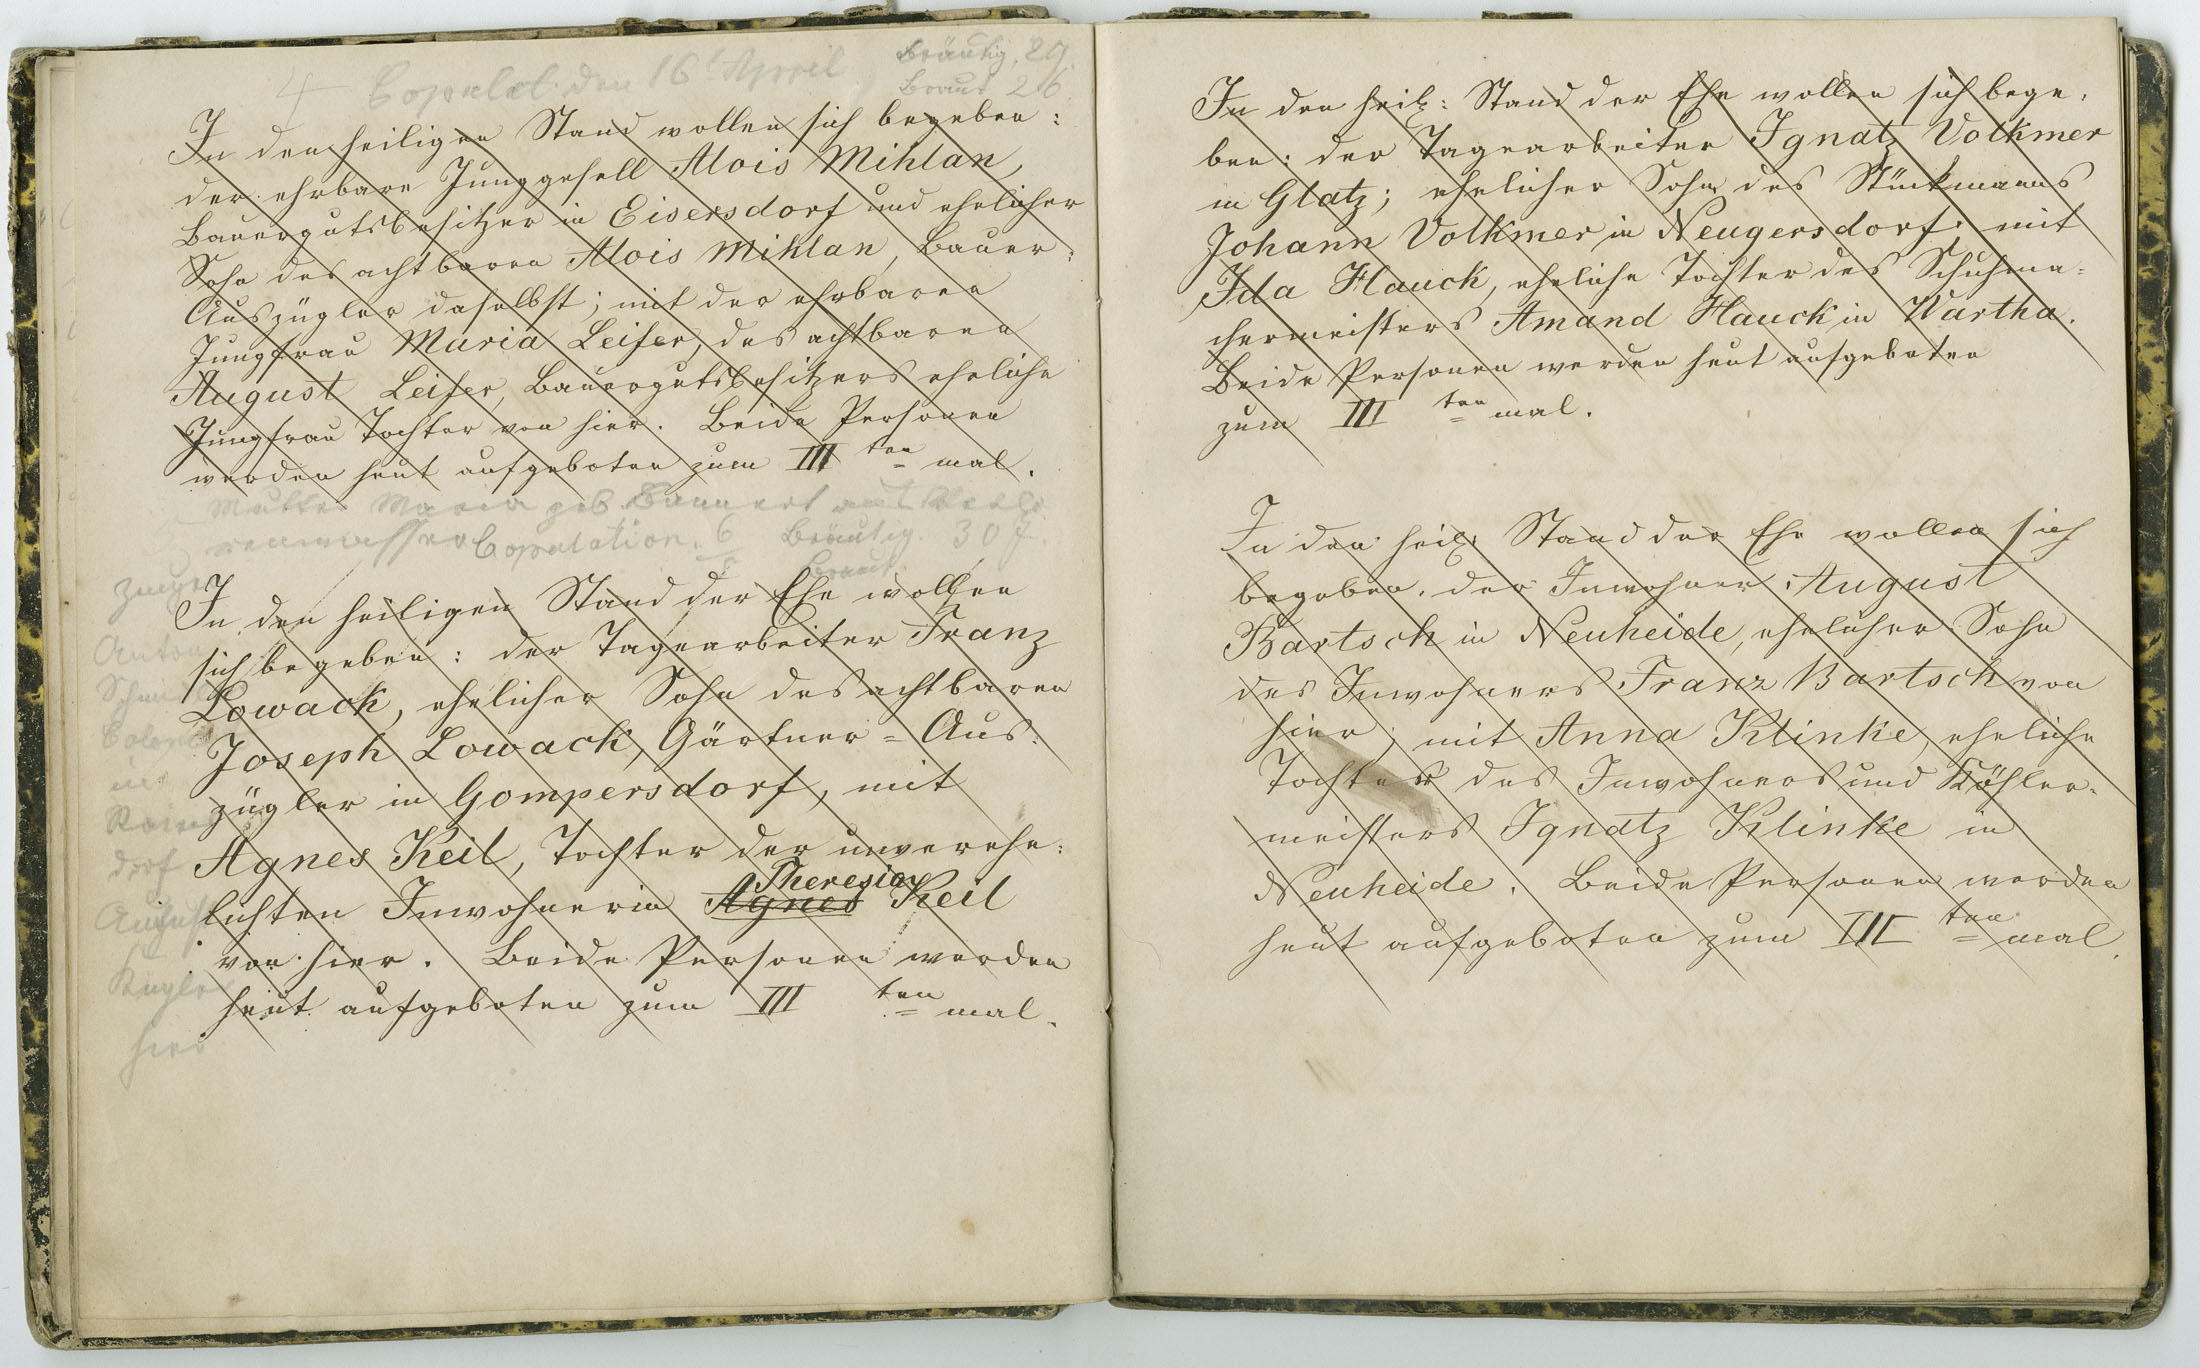 4 Copulat. den 16t April Bräutig. 29.
Braut 26.
In den heiligen Stand wollen sich begeben:
der ehrbare Junggesell Alois Mihlan,
Bauergutsbesitzer in Eisersdorf und ehelicher
Sohn des achtbaren Alois Mihlan, Bauer-
Auszügler daselbst; mit der ehrbaren
Jungfrau Maria Leifer, des achtbaren
August Leifer, Bauergutsbesitzers eheliche
Jungfrau Tochter von hier. Beide Personen
werden heut aufgeboten zum III ten mal.
Mutter Maria geb
Copulation. 6 Bräutig. 30 J.
Braut
In den heiligen Stand der Ehe wollen
sich begeben: der Tagearbeiter Franz
Lowack, ehelicher Sohn des achtbaren
Joseph Lowack, Gärtner-Aus-
zügler in Gompersdorf, mit
Agnes Keil, Tochter der unverehe-
Theresia
lichten Inwohnerin Agnes Keil
von hier. Beide Personen werden
heut aufgeboten zum III ten mal.
Anton
in
dorf
August
hier
In den heil: Stand der Ehe wollen sich bege-
ben: der Tagearbeiter Ignatz Volkmer
in Glatz; ehelicher Sohn des Stückmanns
Johann Volkmer in Neugersdorf mit
Ida Hauck, eheliche Tochter des Schuhma-
chermeisters Amand Hauck in Wartha.
Beide Personen werden heut aufgeboten
zum III ten mal.
In den heil: Stand der Ehe wollen sich
begeben. der Inwohner August
Bartsch in Neuheide, ehelicher Sohn
des Inwohners Franz Bartsch von
hier; mit Anna Klinke, eheliche
Tochter des Inwohners und Köhler-
meisters Ignatz Klinke in
Neuheide. Beide Personen werden
heut aufgeboten zum III ten mal.